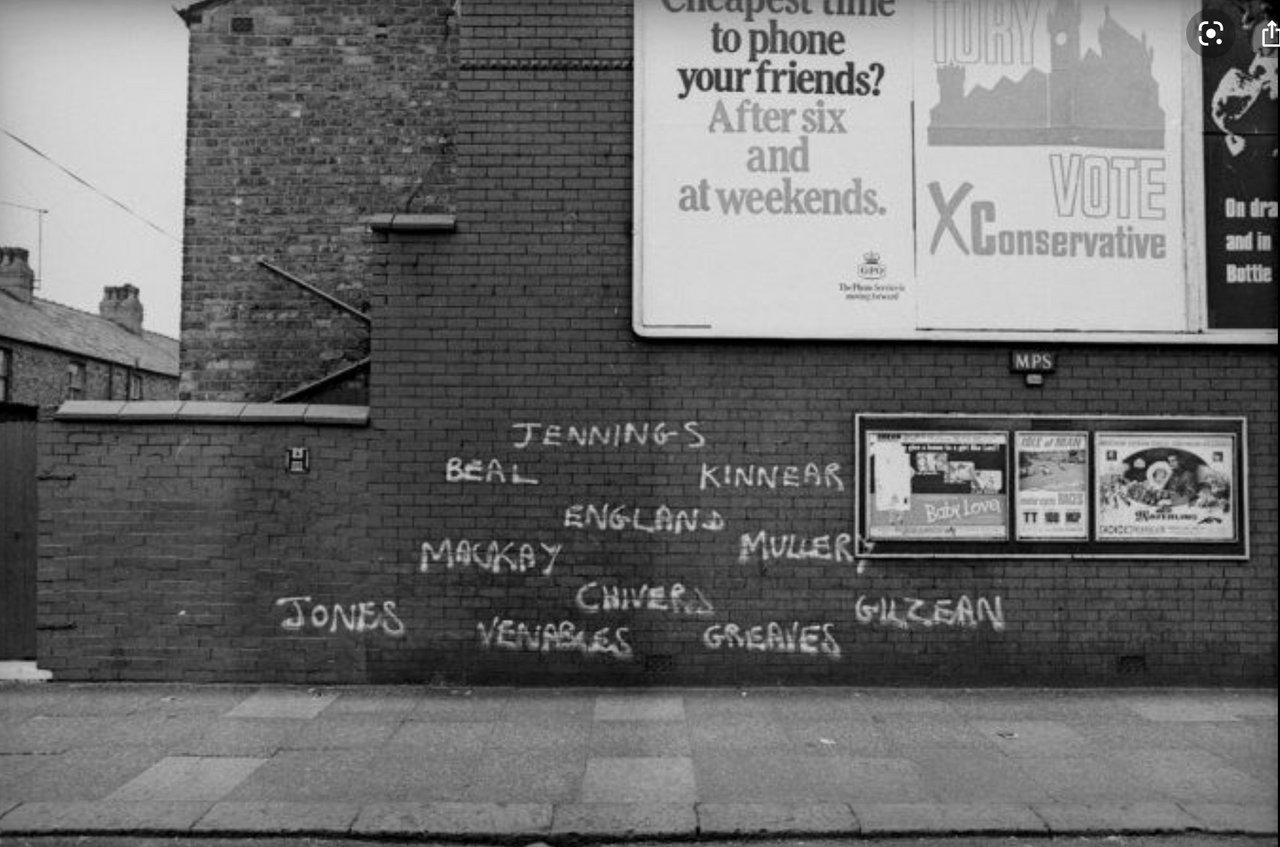 Cheapest time
to phone
your friends?
After six
and
at weekends.
GPO
The Phone Service is
moving forward
TORY
VOTE
X Conservative
On dra
and in
Bottle
MPS
JENNINGS
BEAL KINNEAR
ENGLAND
MACKAY MULLERY
CHIVERS
JONES GILZEAN
VENABLES GREAVES
Baby Love
ISLE of MAN
RACES
TT